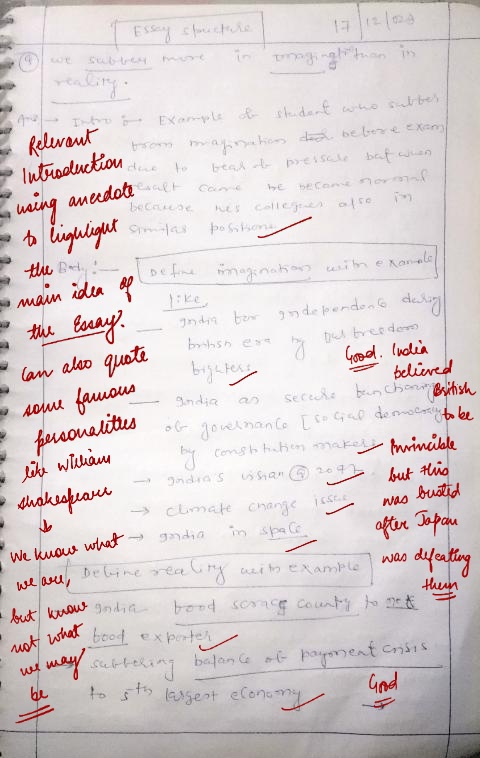 Essay structure
17/12/023
Q we subber more in imagination than in
reality.
Ans → Intro :- Example ob student who subber
brom imagination before exam
due to bear ob pressure but when
result came he became normal
because his collegues also in
similar positions
Body :- Define imagination with example
like
— India bor independence during
british era by our breedom
bighters
— India as secure bunctioning
ob governance [social democracy
by constitution makers
→ India's vision @ 2047
→ climate change issue
→ India in space
Define reality with example
India bood scrace county to net
bood exporter
subbering balance ob payment crisis
to 5th largest economy
Relevant
Introduction
using anecdote
to highlight
the
main idea of
the Essay.
Can also quote
some famous
personalities
like William
Shakespeare
↓
We know what
we are,
but know
not what
we may
be
Good. India
believed
British
to be
Invincible
but this
was busted
after Japan
was defeating
them
Good